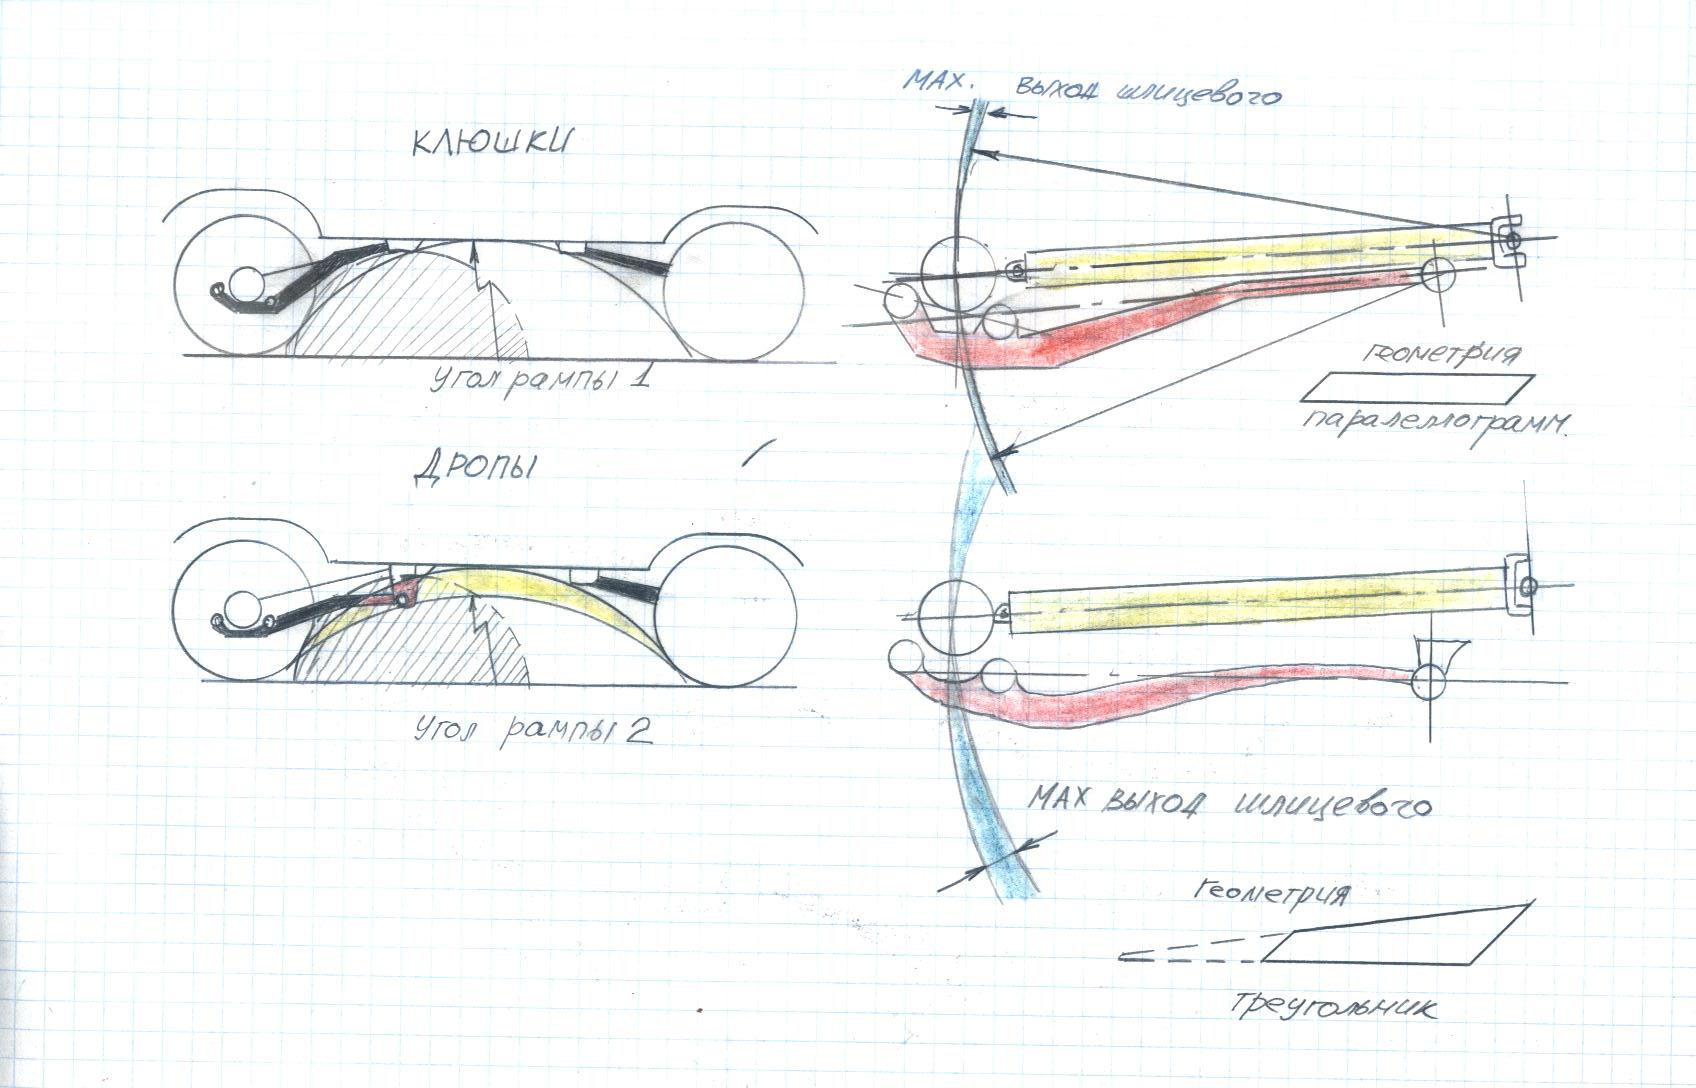 MAX. ВЫХОД шлицевого
КЛЮШКИ
Угол рампы 1
геометрия
паралеллограмм.
ДРОПЫ
Угол рампы 2
MAX ВЫХОД шлицевого
геометрия
треугольник